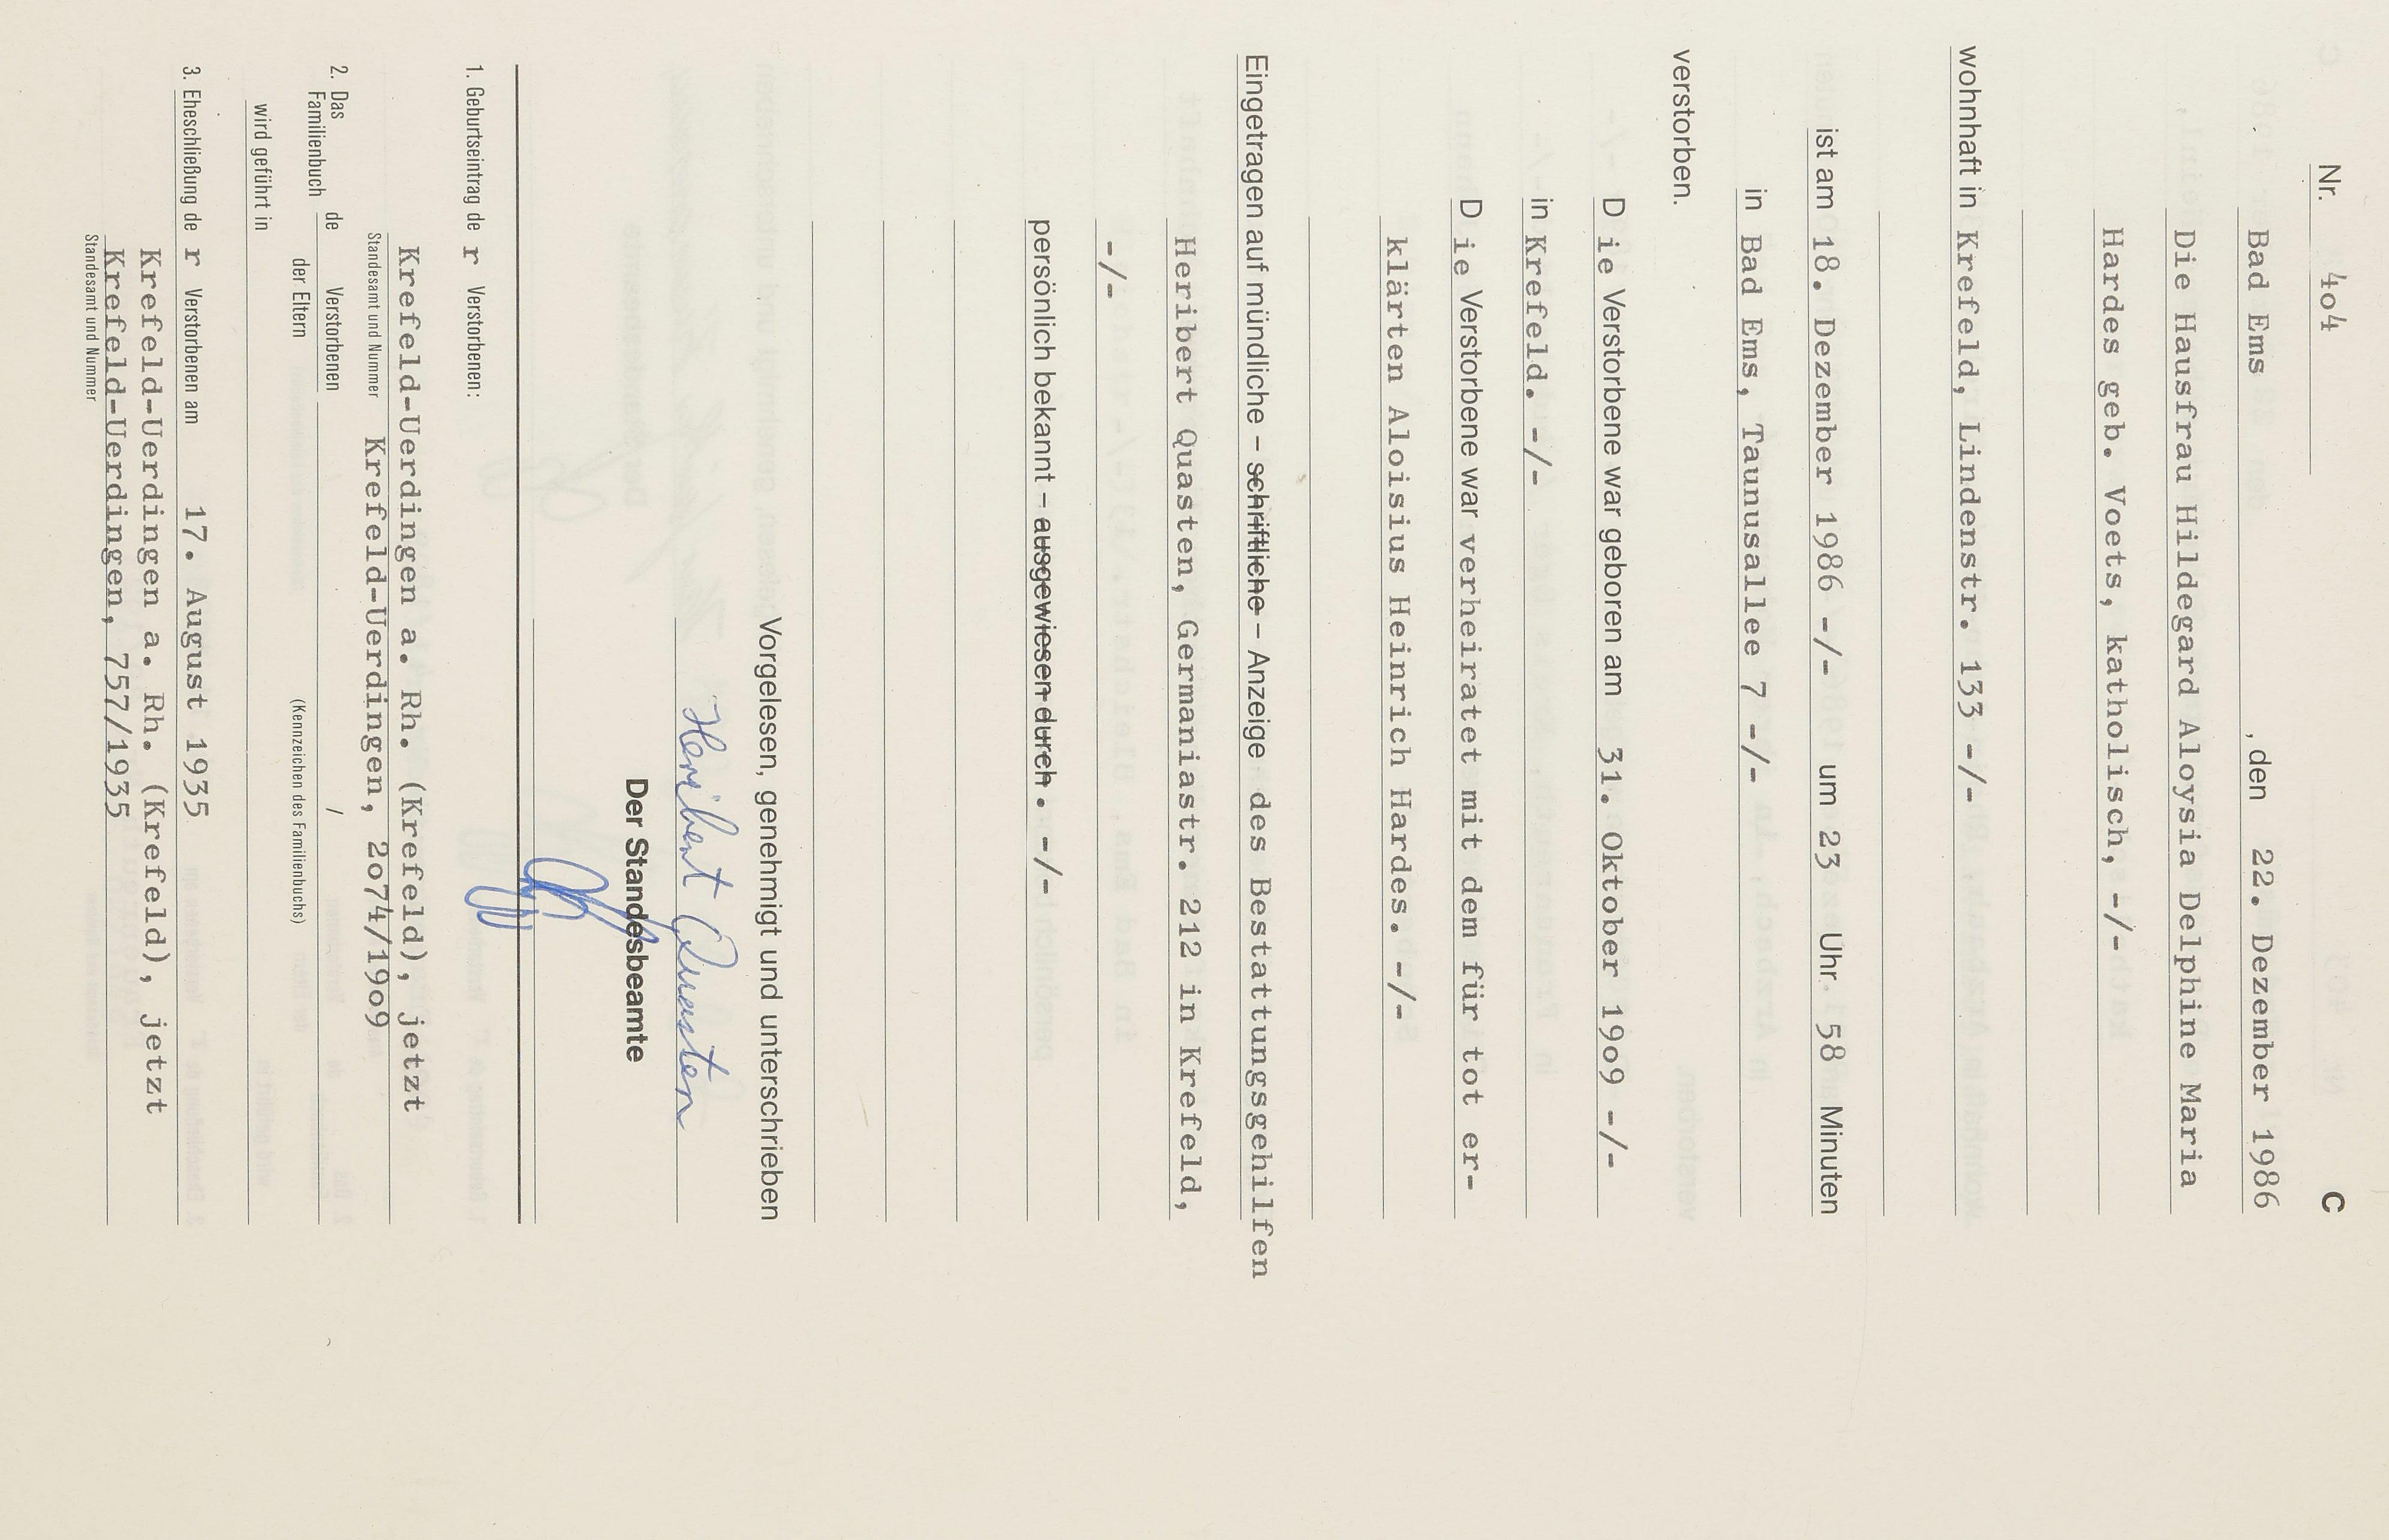 C
Nr. 4o4
Bad Ems, den 22. Dezember 1986
Die Hausfrau Hildegard Aloysia Delphine Maria
Hardes geb. Voets, katholisch, -/-
wohnhaft in Krefeld, Lindenstr. 133 -/-
ist am 18. Dezember 1986 -/- um 23 Uhr 58 Minuten
in Bad Ems, Taunusallee 7 -/-
verstorben.
D ie Verstorbene war geboren am 31. Oktober 19o9 -/-
in Krefeld. -/-
D ie Verstorbene war verheiratet mit dem für tot er-
klärten Aloisius Heinrich Hardes. -/-
Eingetragen auf mündliche – schriftliche – Anzeige des Bestattungsgehilfen
Heribert Quasten, Germaniastr. 212 in Krefeld,
-/-
persönlich bekannt – ausgewiesen durch . -/-
Vorgelesen, genehmigt und unterschrieben
Heribert Quasten
Der Standesbeamte
1. Geburtseintrag de r Verstorbenen:
Krefeld-Uerdingen a. Rh. (Krefeld), jetzt
Krefeld-Uerdingen, 2o74/19o9
Standesamt und Nummer
2. Das Familienbuch de Verstorbenen /
der Eltern (Kennzeichen des Familienbuchs)
wird geführt in
3. Eheschließung de r Verstorbenen am 17. August 1935
Krefeld-Uerdingen a. Rh. (Krefeld), jetzt
Krefeld-Uerdingen, 757/1935
Standesamt und Nummer